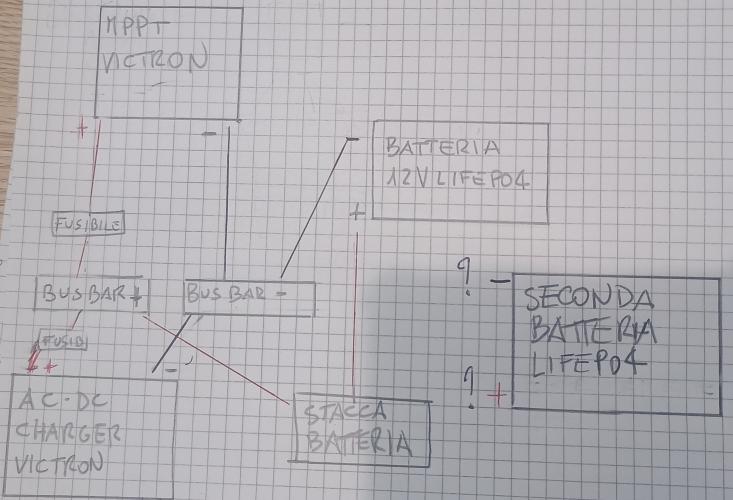 MPPT
VICTRON
+
-
BATTERIA
12V LIFEPO4
-
+
FUSIBILE
BUSBAR+
BUSBAR -
FUSIB
+
-
AC-DC
CHARGER
VICTRON
STACCA
BATTERIA
? -
SECONDA
BATTERIA
LIFEPO4
? +